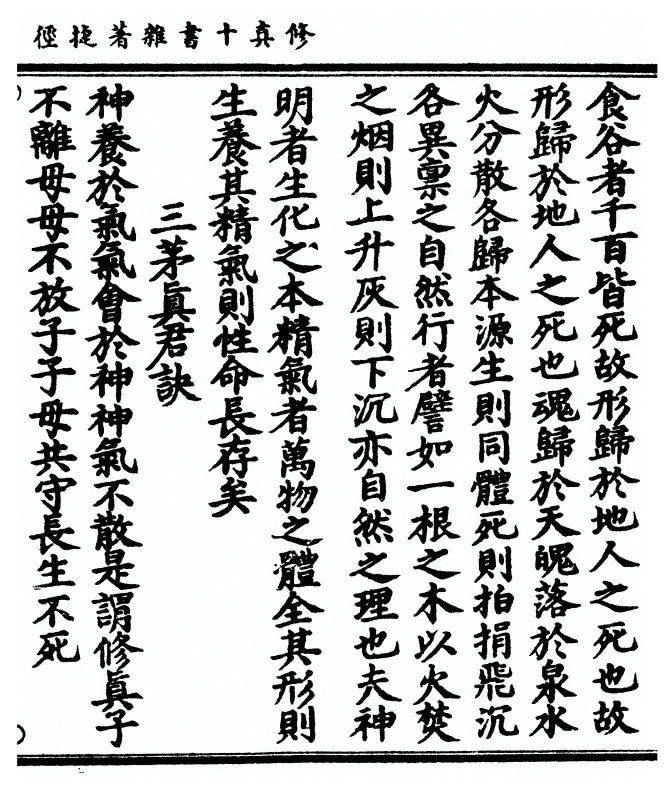 修真十書雜著捷徑
食谷者千百皆死故形歸於地人之死也故
形歸於地人之死也魂歸於天魄落於泉水
火分散各歸本源生則同體死則拍捐飛沉
各異稟之自然行者譬如一根之木以火焚
之烟則上升灰則下沉亦自然之理也夫神
明者生化之本精氣者萬物之體全其形則
生養其精氣則性命長存矣
三茅眞君訣
神養於氣氣會於神神氣不散是謂修眞子
不離母母不放子子母共守長生不死